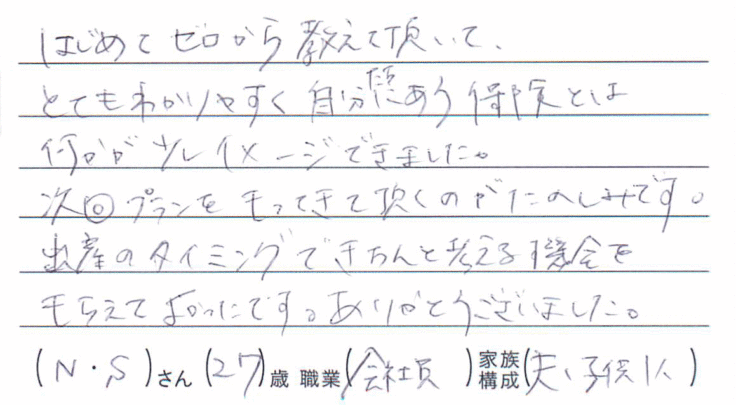 はじめてゼロから教えて頂いて、
とてもわかりやすく自分達にあう保険とは
何かが少しイメージできました。
次回プランをもってきて頂くのがたのしみです。
出産のタイミングできちんと考える機会を
もらえてよかったです。ありがとうございました。
(N・S)さん(27)歳 職業(会社員)家族構成(夫、子供1人)